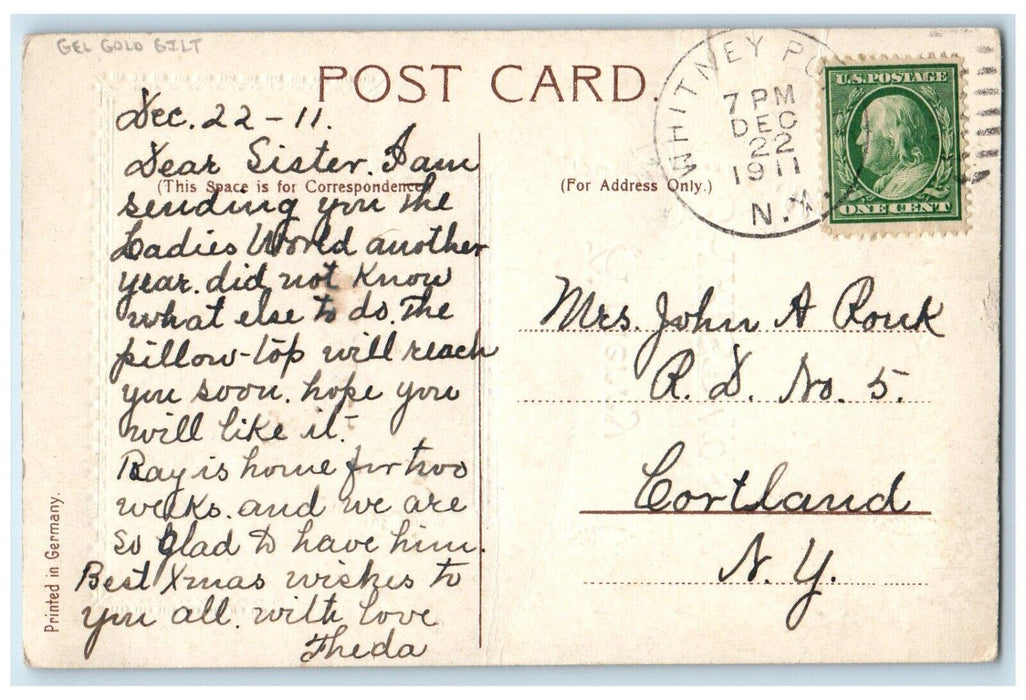 GEL GOLD GILT
POST CARD.
WHITNEY PO
7 PM
DEC
22
1911
N.Y.
U.S. POSTAGE
ONE CENT
Dec. 22-11.
Dear Sister. I am
(This Space is for Correspondence
sending you the
Ladies World another
year. did not know
what else to do. The
pillow-top will reach
you soon. hope you
will like it.
Ray is home for two
weeks. and we are
so glad to have him.
Best Xmas wishes to
you all. with love
Theda
Printed in Germany.
(For Address Only.)
Mrs. John A Rouk
R. D. No. 5.
Cortland
N. Y.